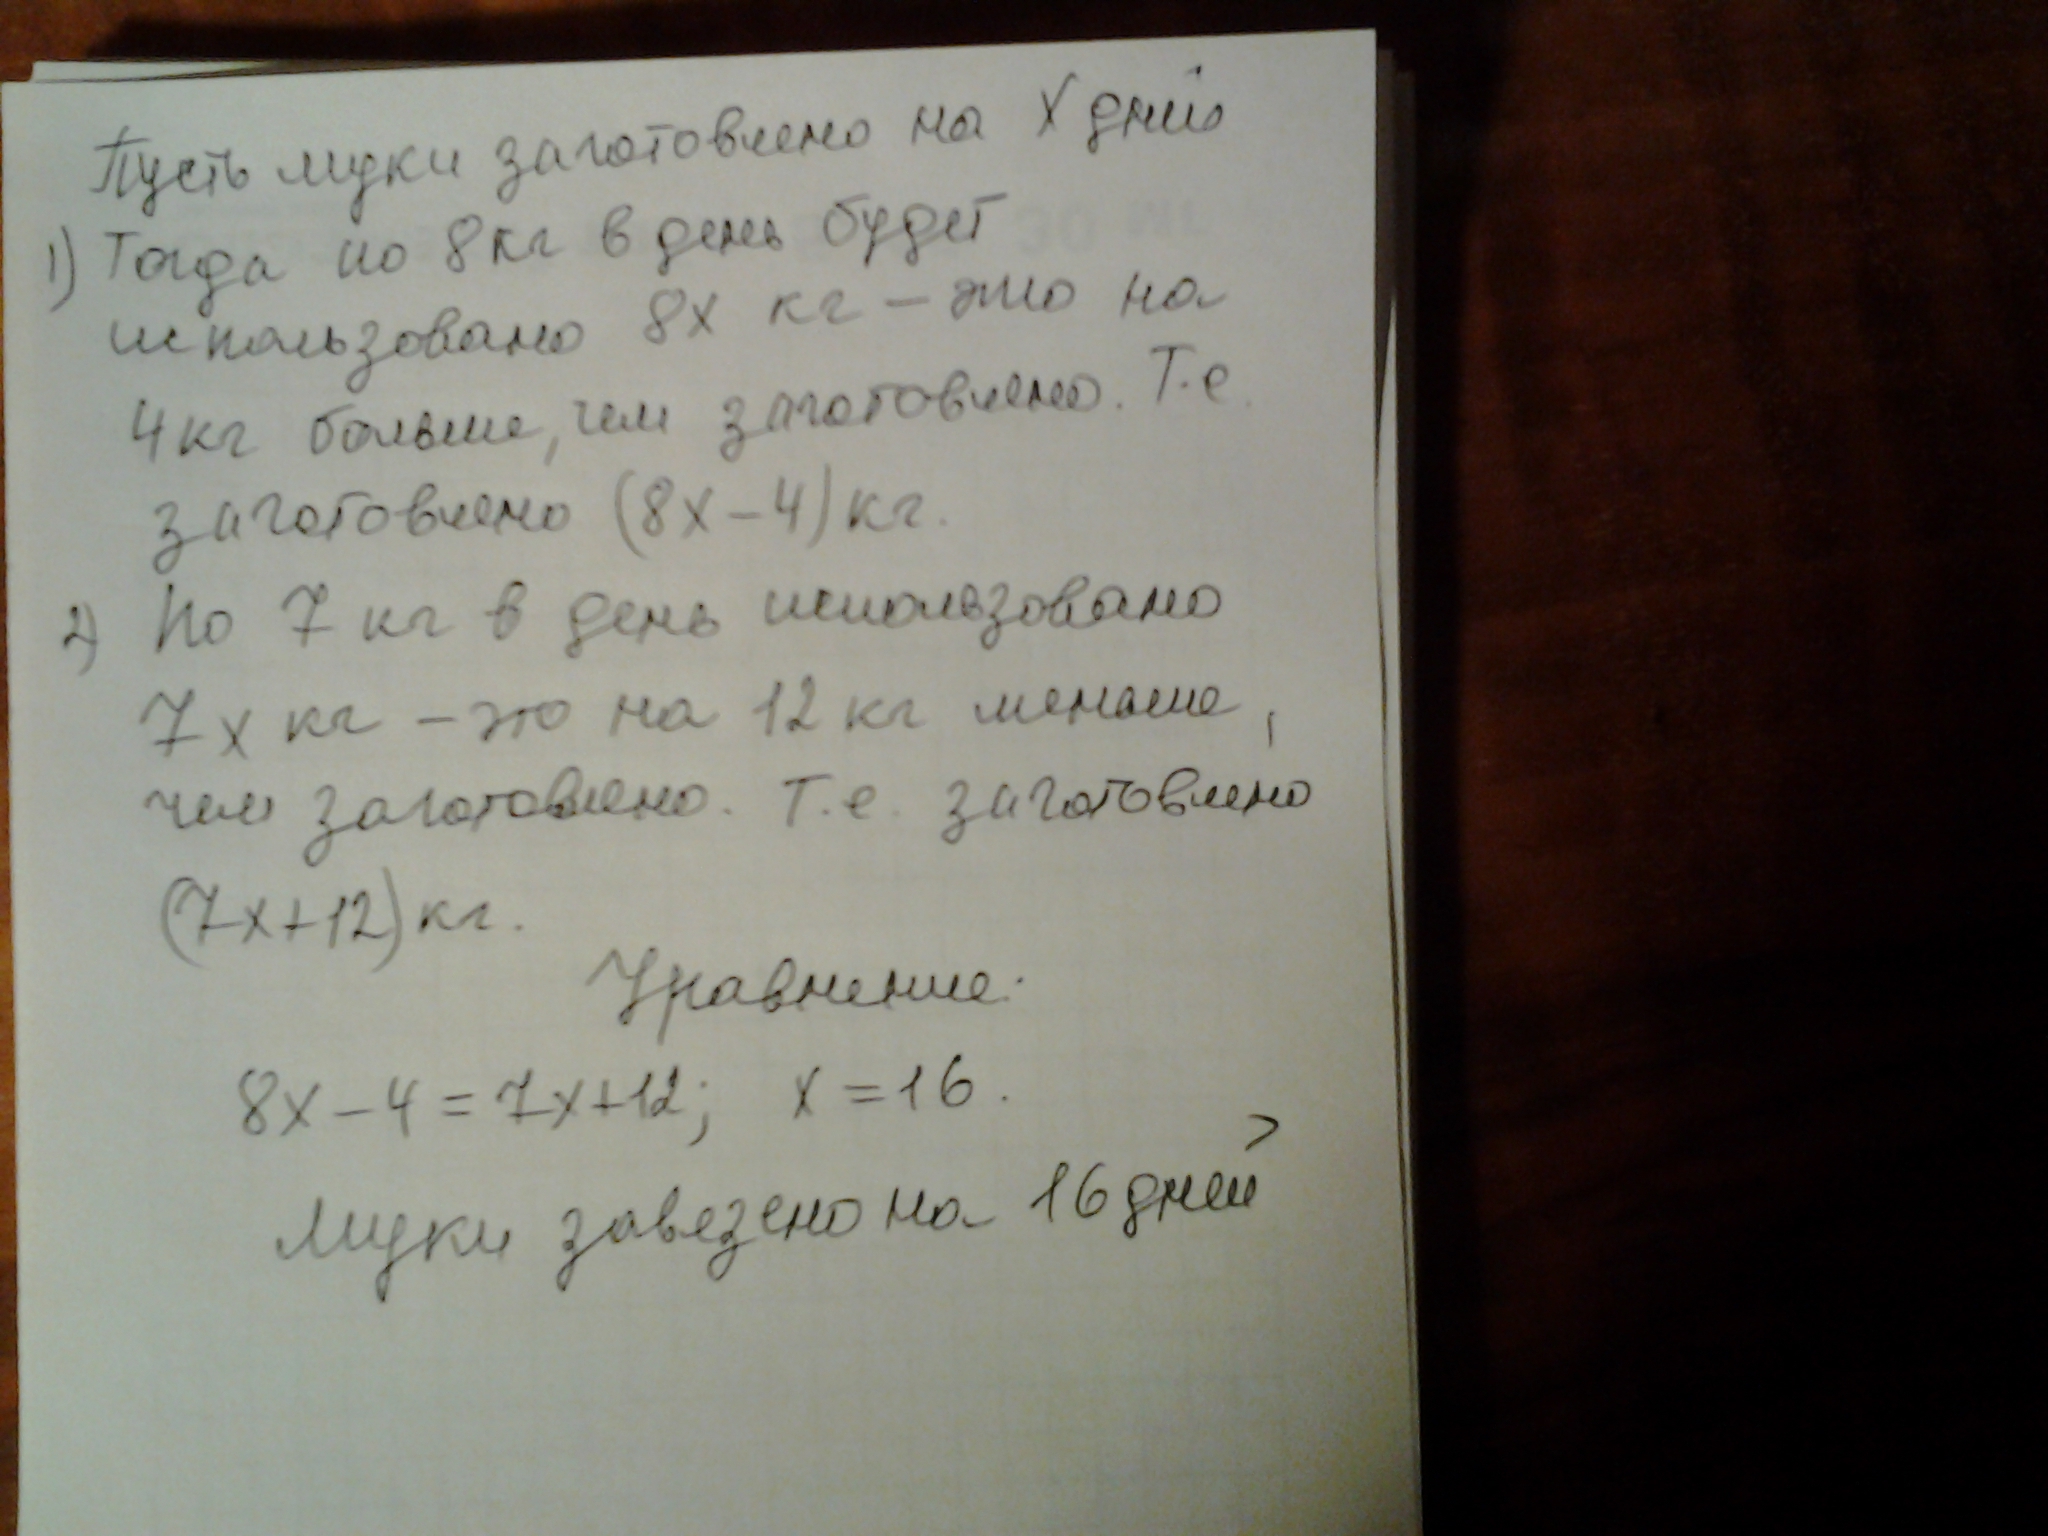 Пусть муки заготовлено на X дней
1) Тогда по 8 кг в день будет
использовано 8x кг – это на
4 кг больше, чем заготовлено. Т.е.
заготовлено (8x – 4) кг.
2) По 7 кг в день использовано
7x кг – это на 12 кг меньше,
чем заготовлено. Т.е. заготовлено
(7x+12) кг.
Уравнение:
8x – 4 = 7x+12; x = 16.
Муки завезено на 16 дней